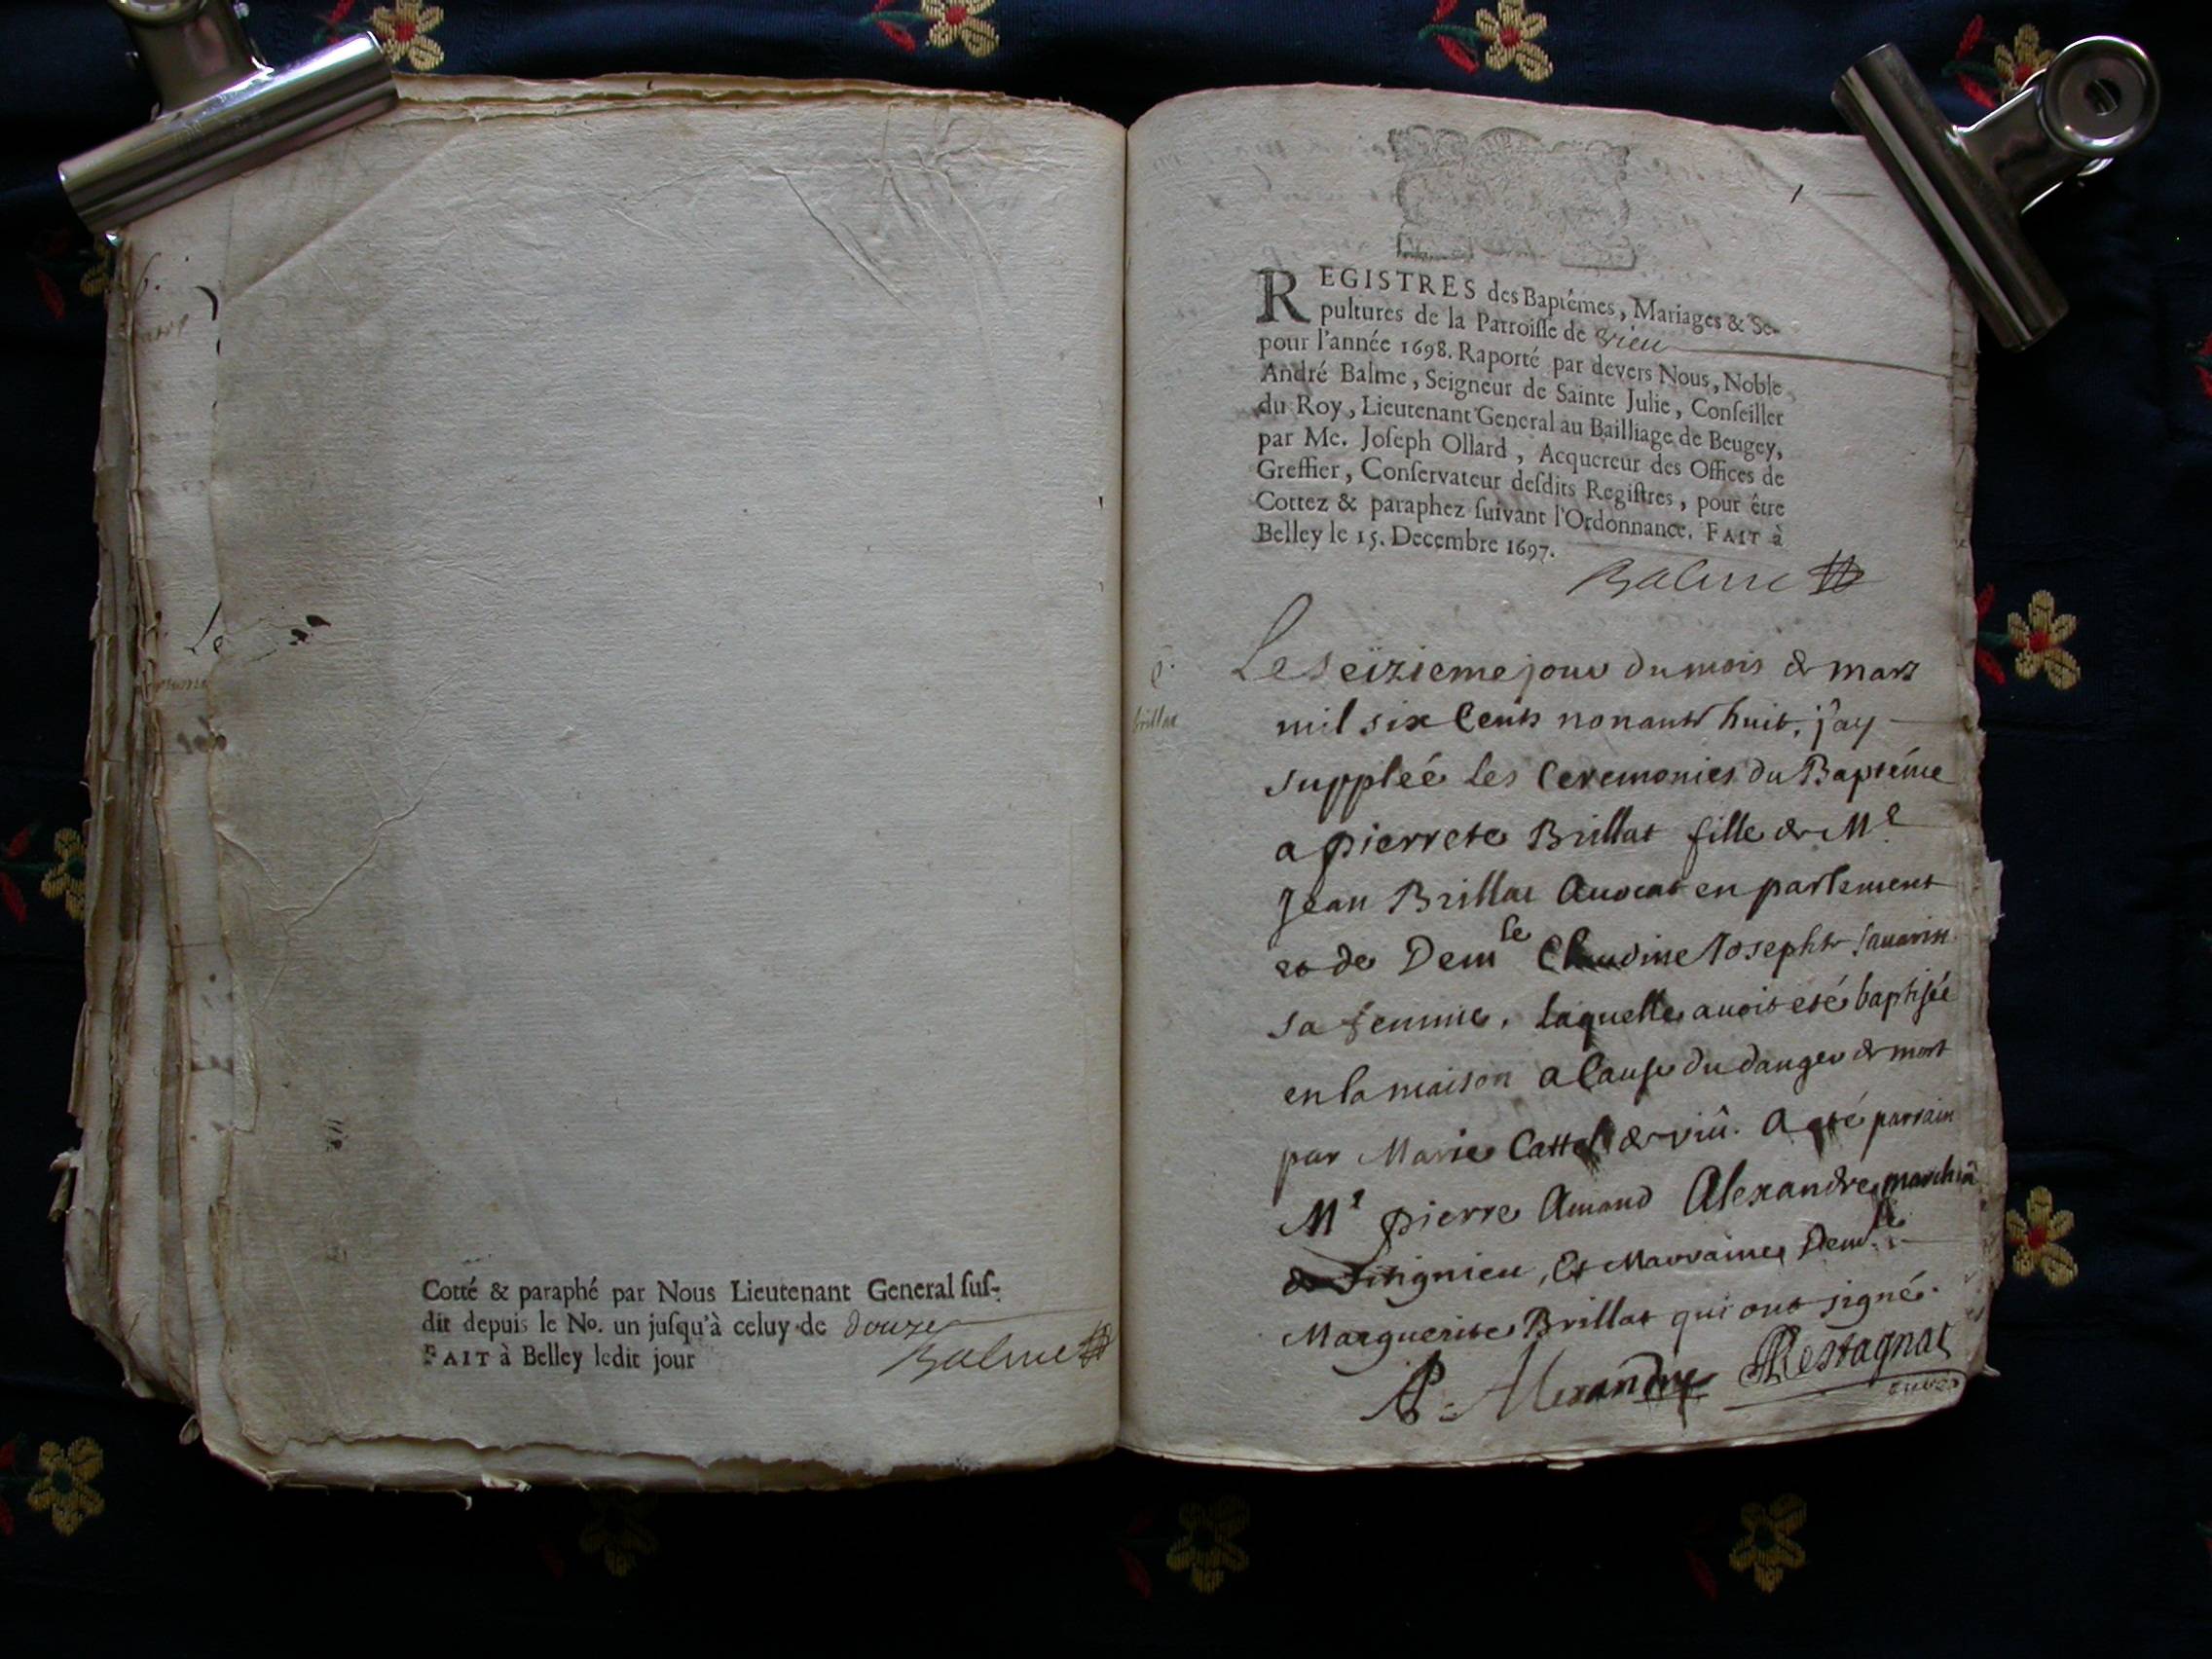 Cotté & paraphé par Nous Lieutenant General ſuſ-
dit depuis le No. un juſqu'à celuy de douze
FAIT à Belley ledit jour
Balme
1
REGISTRES des Baptêmes, Mariages & Se-
pultures de la Parroiſſe de Vieu
pour l'année 1698. Raporté par devers Nous, Noble
André Balme, Seigneur de Sainte Julie, Conſeiller
du Roy, Lieutenant General au Bailliage de Beugey,
par Me. Joſeph Ollard, Acquereur des Offices de
Greffier, Conſervateur deſdits Regiſtres, pour être
Cottez & paraphez ſuivant l'Ordonnance. FAIT à
Belley le 15. Decembre 1697.
Balme
brillat
Le seizieme jour du mois de mars
mil six Cents nonante huit, j'ay
suppleé les Ceremonies du Baptéme
a pierrete Brillat fille de Me
Jean Brillat Auocat en parlement
et de Demle Claudine Josephte sauarin
sa femme, laquelle auoit eté baptisée
en la maison a Cause du danger de mort
par Marie Cattel de viû. A eté parrain
Mr pierre Amand Alexandre marchâ
de Sitignieu, Et Marraine, Demle
Marguerite Brillat qui ont signé.
P. Alexandre Restagnat
curé